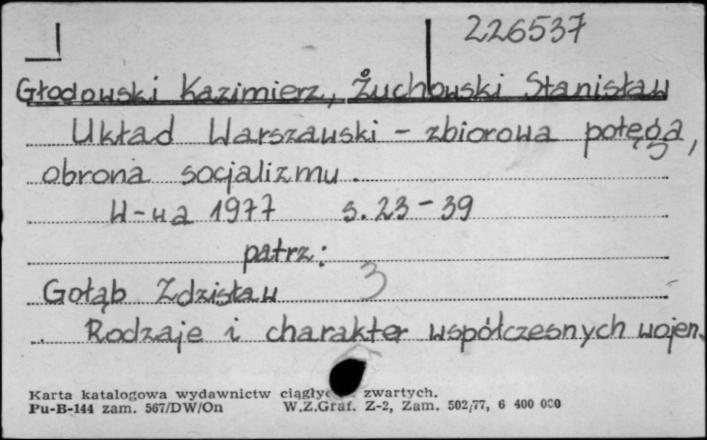 226537
Głodowski Kazimierz, Żuchowski Stanisław
Układ Warszawski - zbiorowa potęga,
obrona socjalizmu.
W-wa 1977 s. 23-39
patrz:
Gołąb Zdzisław 3
Rodzaje i charakter współczesnych wojen.
Karta katalogowa wydawnictw zwartych.
Pu-B-144 zam. 567/DW/On W.Z.Graf. Z-2, Zam. 502/77, 6 400 000